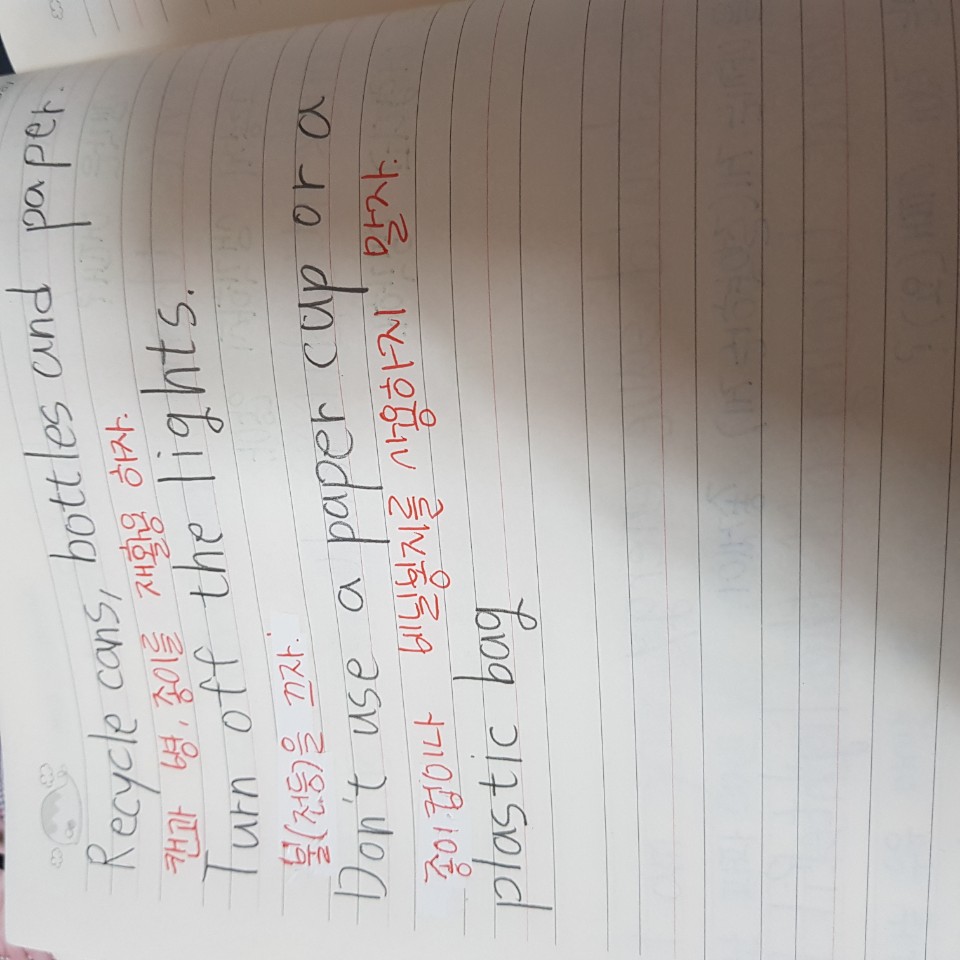 Recycle cans, bottles and paper.
캔과 병, 종이를 재활용 하자.
Turn off the lights.
불(전등)을 끄자.
Don't use a paper cup or a
종이컵이나 비닐봉지를 사용하지 말자.
plastic bag